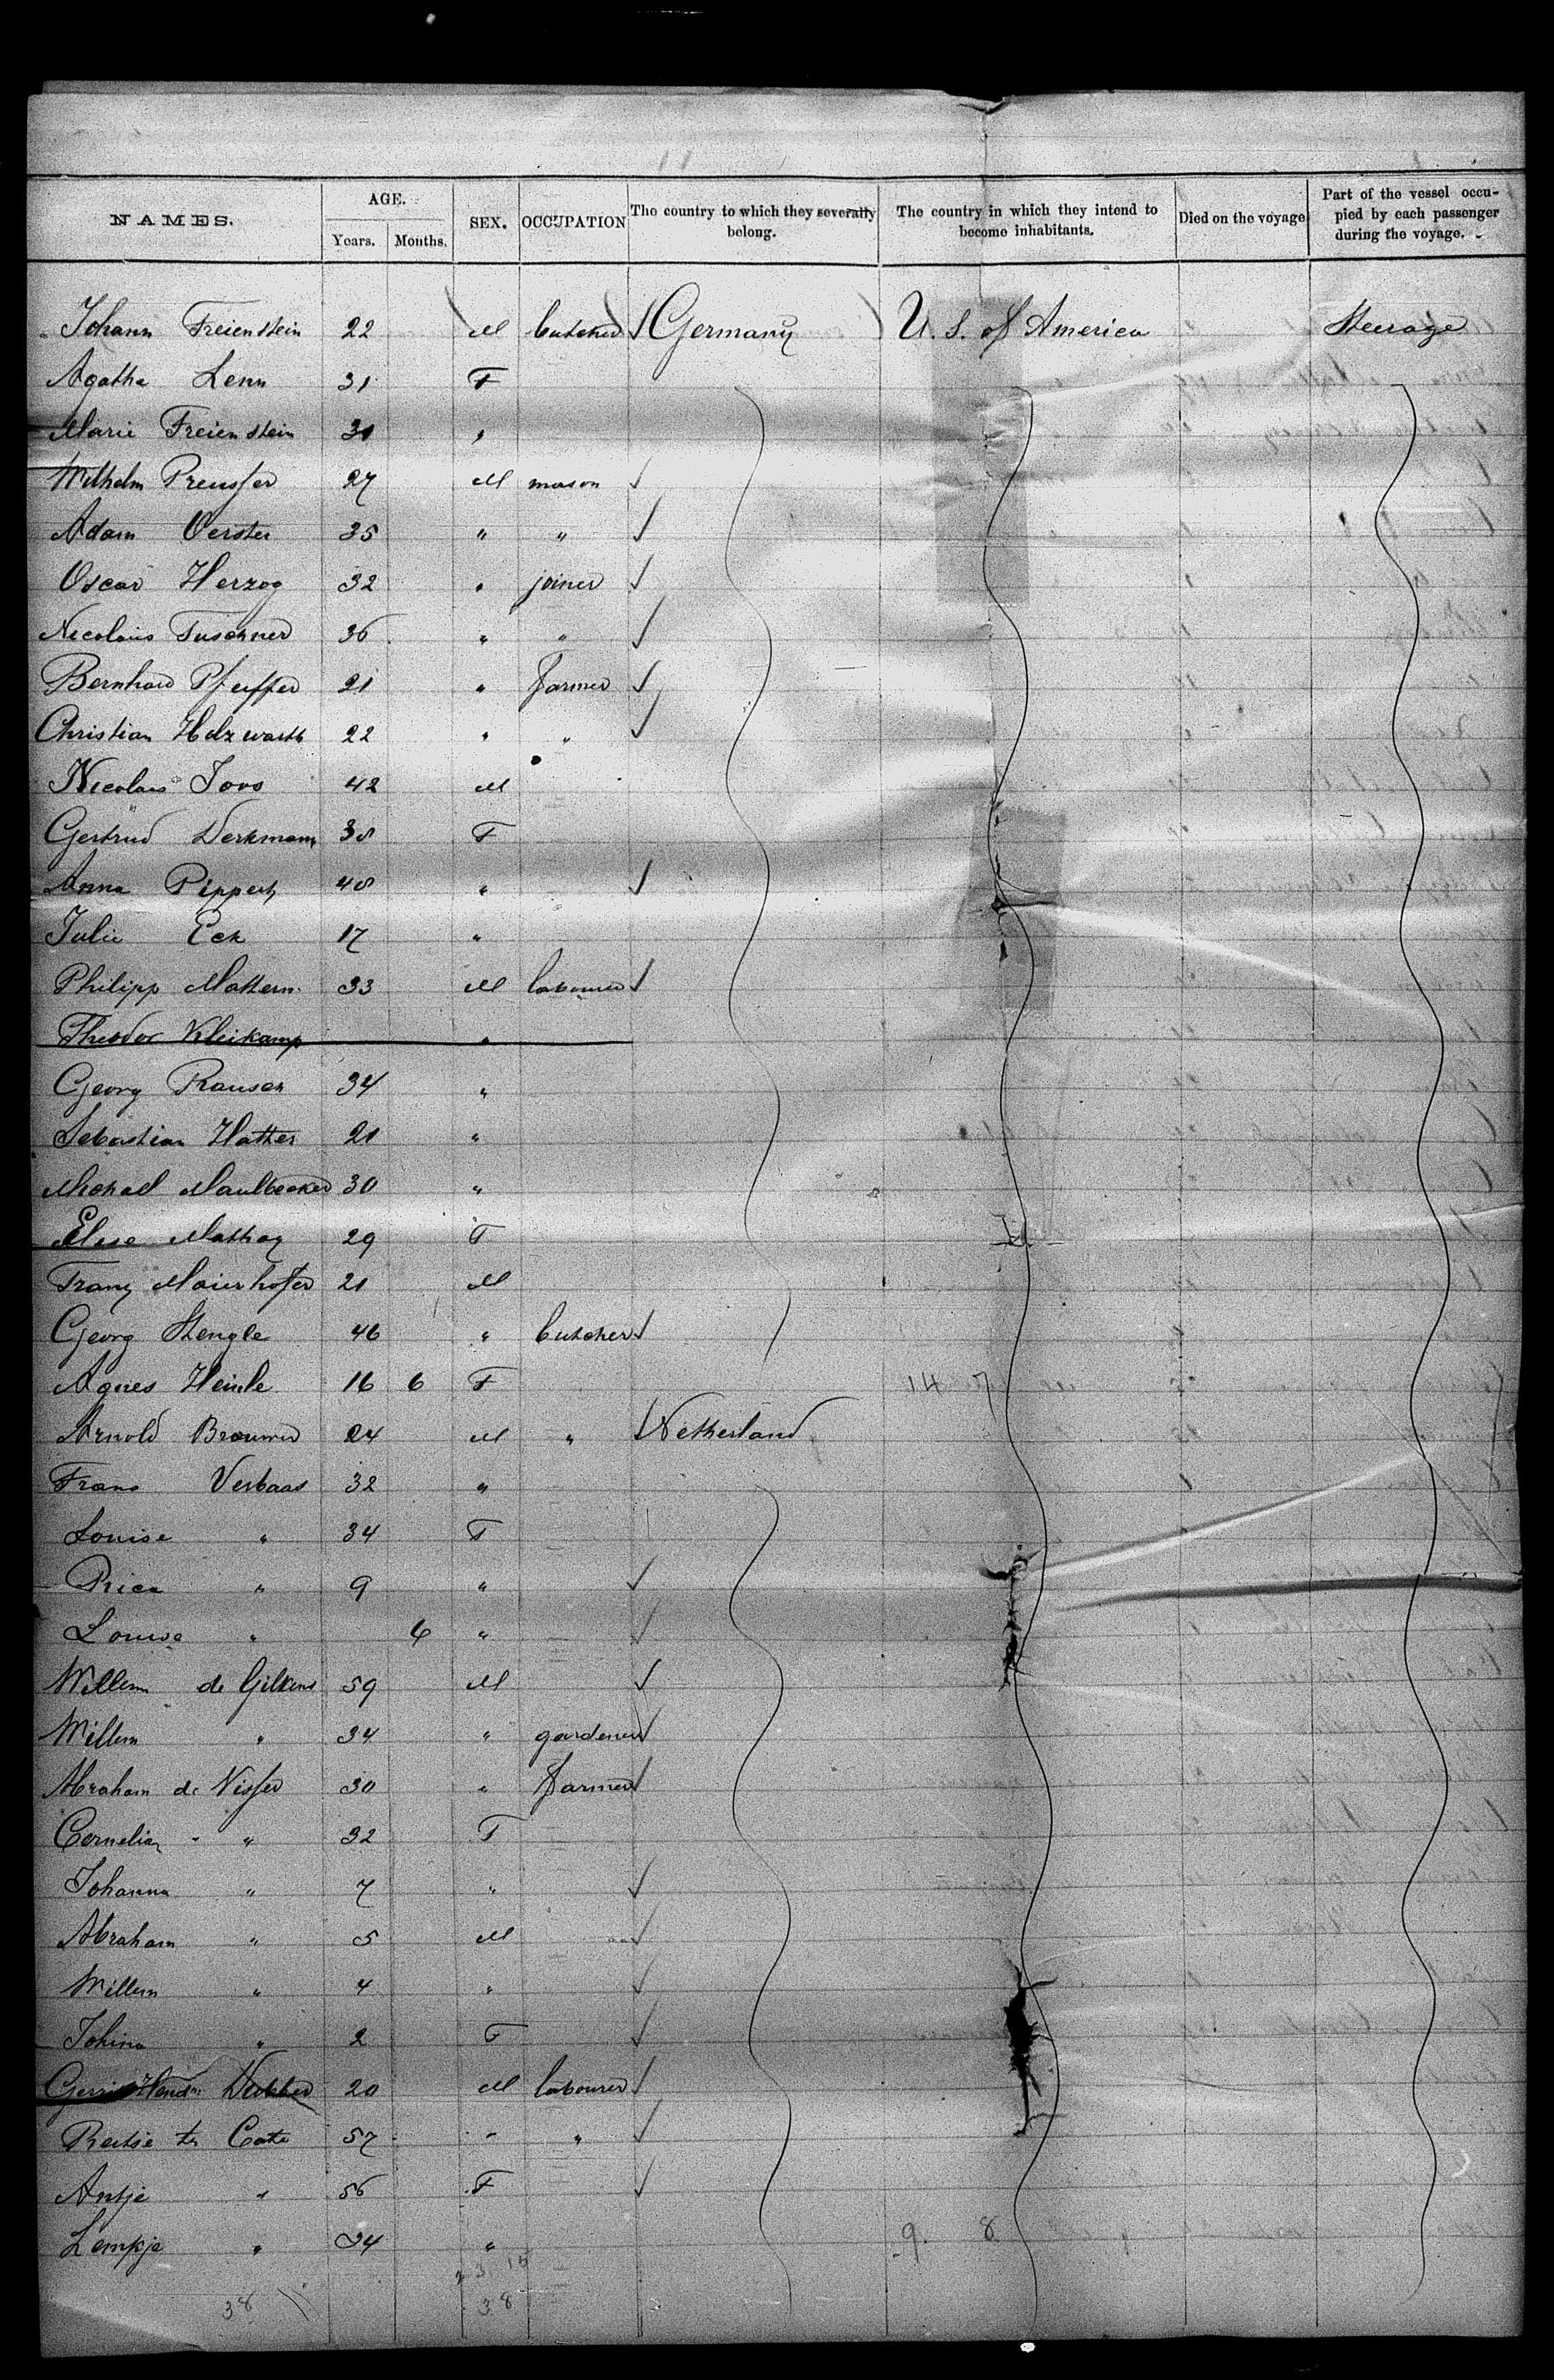 NAMES. AGE. SEX. OCCUPATION The country to which they severally belong. The country in which they intend to become inhabitants. Died on the voyage Part of the vessel occupied by each passenger during the voyage.
Years. Months.
Johann Freienstein 22 M butcher Germany U. S. of America Steerage
Agatha Lenn 31 F
Marie Freienstein 31 "
Wilhelm Preusser 27 M mason
Adam Oerster 35 " "
Oscar Herzog 32 " joiner
Nicolaus Tuschner 36 " "
Bernhard Pfeiffer 21 " farmer
Christian Holzwarth 22 " "
Nicolaus Joos 42 M
Gertrud Derkmann 38 F
Anna Pippert 48 "
Julie Eck 17 "
Philipp Mattern 33 M labourer
Theodor Kleikamp "
Georg Rausch 34 "
Sebastian Hatter 21 "
Michael Maulbecker 30 "
Elise Mathay 29 F
Franz Maierhofer 21 M
Georg Stengle 46 " butcher
Agnes Heinle 16 6 F 14 7
Arnold Brouwer 24 M " Netherland
Frans Verbaas 32 "
Louise " 34 F
" 9 "
Louise " 6 "
Willem de Gilkens 59 M
Willem " 34 " gardener
Abraham de Visser 30 " farmer
Cornelia " " 32 F
Johanna " 7 "
Abraham " 5 M
Willem " 4 "
Johina " 2 F
Gerrit Hendr. Dubber 20 M labourer
ter Cate 57 " "
Antje " 56 F
Lempje " 24 " 9. 8
23 15
38 38